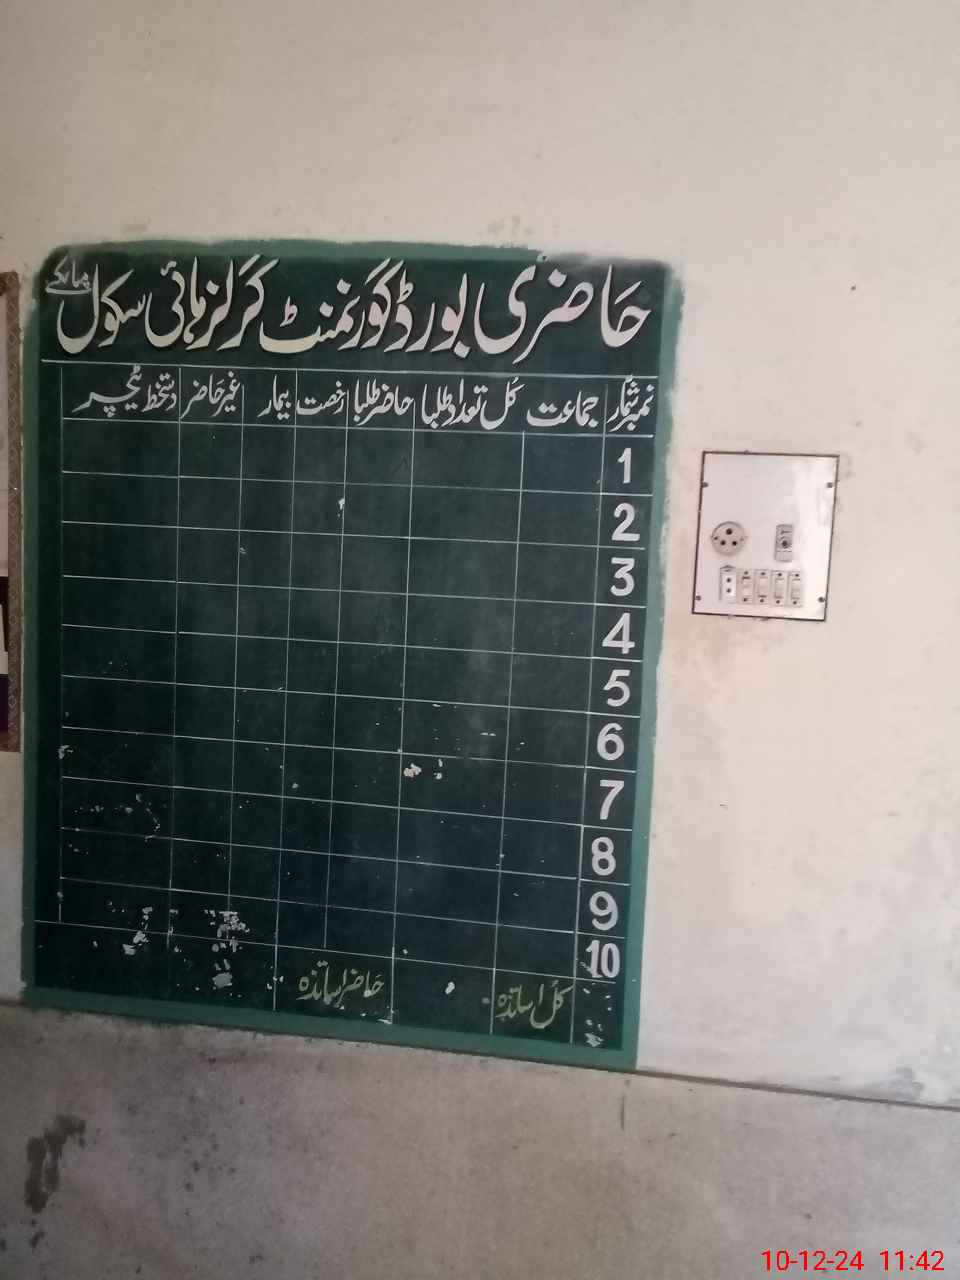 حاضری بورڈ گورنمنٹ گرلز ہائی سکول
نمبر شمار جماعت کل تعداد طلبا حاضر طلبا رخصت بیمار غیر حاضر دستخط ٹیچر
1
2
3
4
5
6
7
8
9
10
کل اساتذہ حاضر اساتذہ
10-12-24 11:42